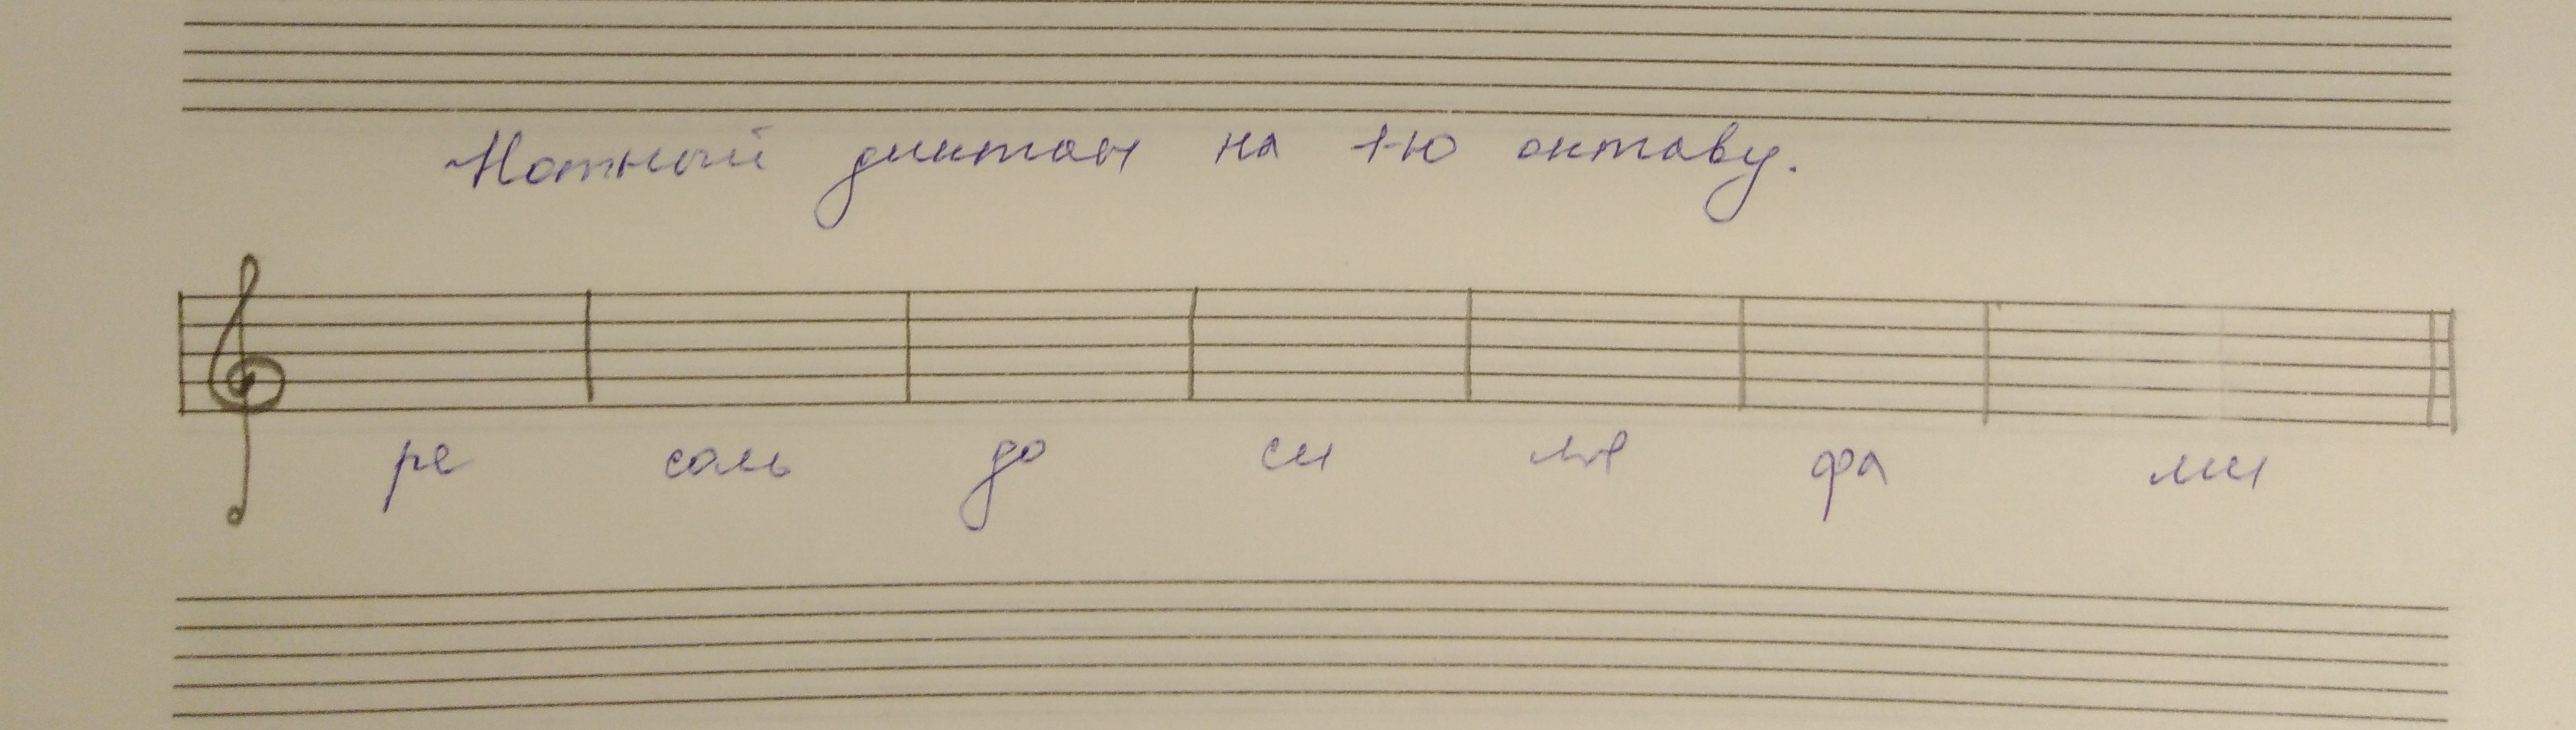 Нотный диктант на 1-ю октаву.
ре соль до си ля фа ми